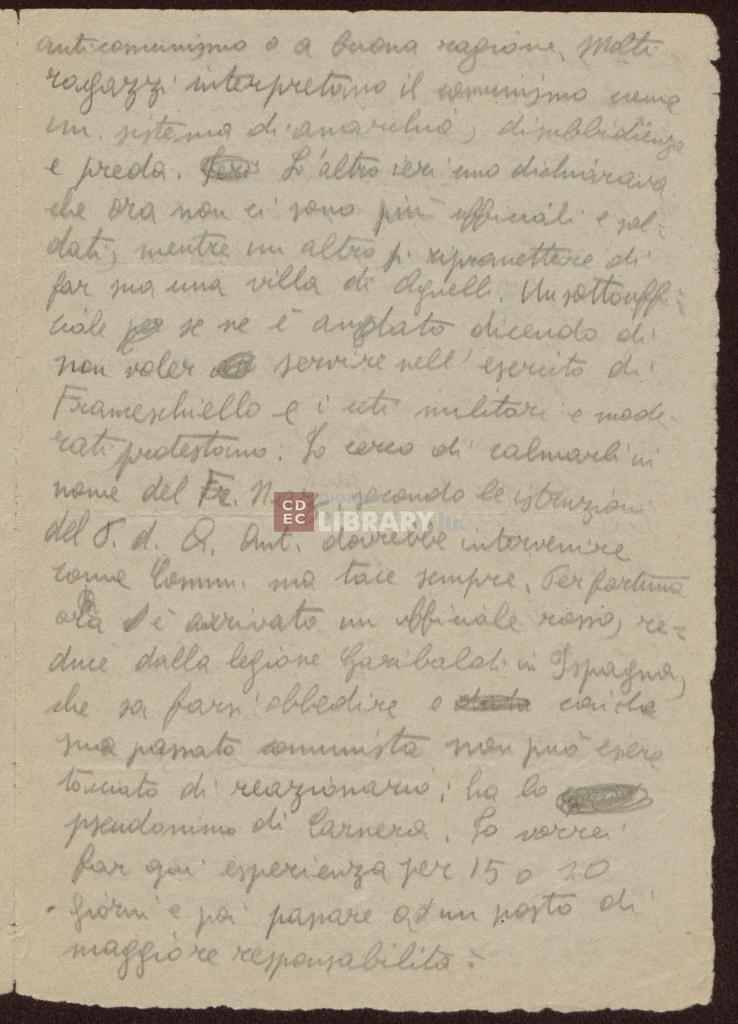 anticomunismo o a buona ragione. Molti
ragazzi interpretano il comunismo come
un sistema di anarchia, disubbidienza
e preda. L'altro ieri uno dichiarava
che ora non ci sono più ufficiali e sol-
dati, mentre un altro si riprometteva di
far sua una villa di Agnelli. Un sottouffi-
ciale se ne è andato dicendo di
non voler servire nell'esercito di
Franceschiello e i ceti militari e mode-
rati protestano. Io cerco di calmarli in
nome del Fr. N. secondo le istruzioni
del P. d. A. Ant. dovrebbe intervenire
come Comm. ma tace sempre. Per fortuna
ora è arrivato un ufficiale rosso, re-
duce dalla legione Garibaldi in Ispagna,
che sa farsi obbedire e con la
suo passato comunista non può essere
tacciato di reazionario; ha lo
pseudonimo di Carnera. Io vorrei
far qui esperienza per 15 o 20
giorni e poi passare ad un posto di
maggiore responsabilità.
CDEC LIBRARY